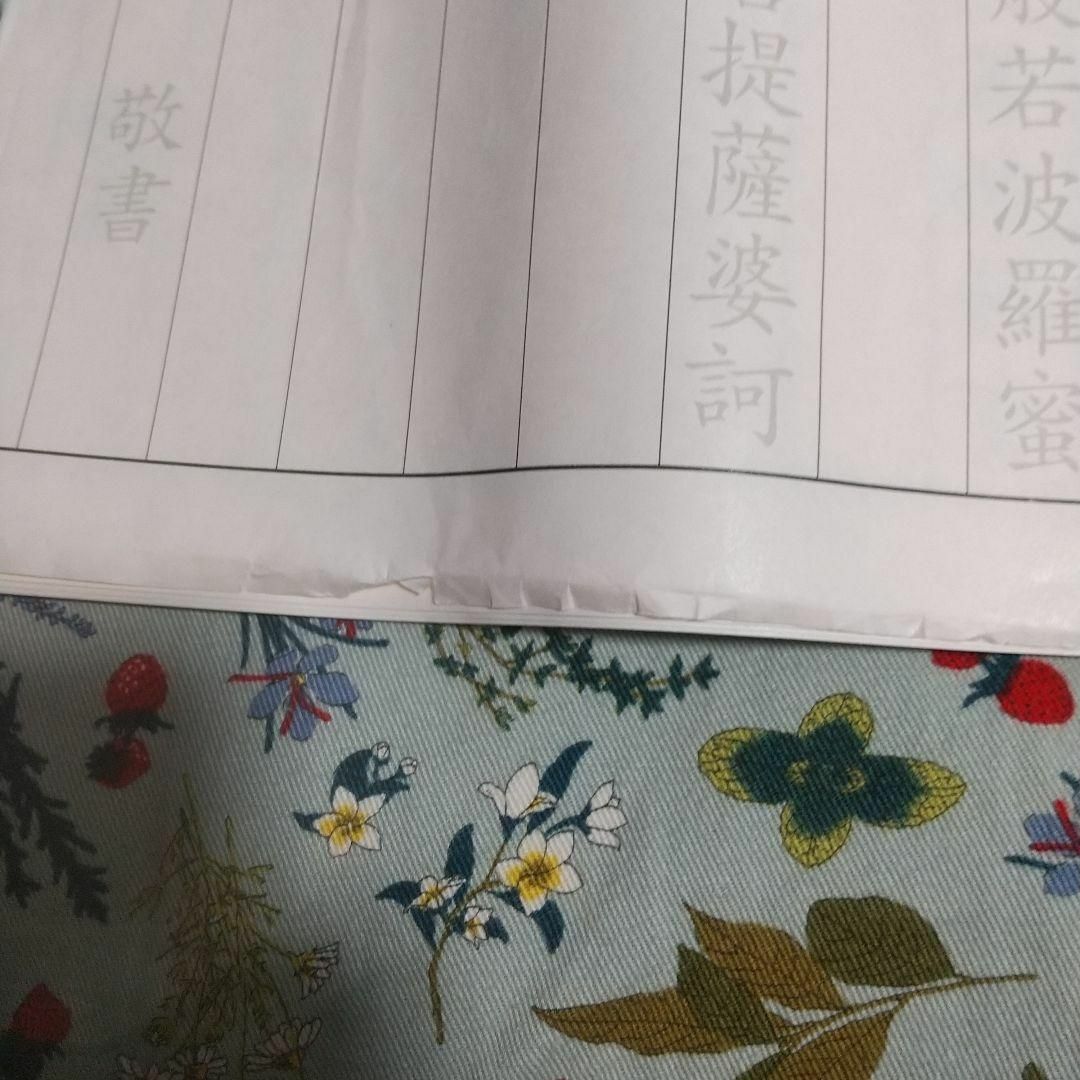 般若波羅蜜
菩提薩婆訶
敬書